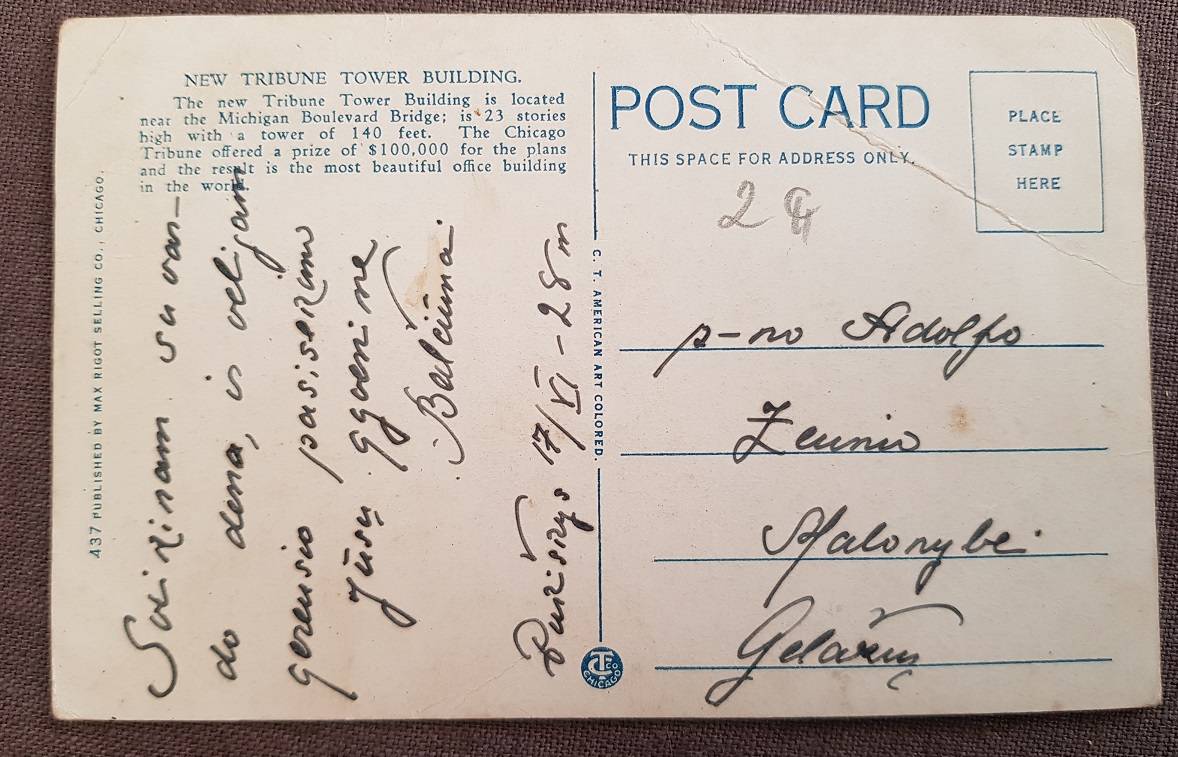 NEW TRIBUNE TOWER BUILDING.
The new Tribune Tower Building is located
near the Michigan Boulevard Bridge; is 23 stories
high with a tower of 140 feet. The Chicago
Tribune offered a prize of $100,000 for the plans
and the result is the most beautiful office building
in the world.
437 PUBLISHED BY MAX RIGOT SELLING CO., CHICAGO.
Sveikinam su var-
do dena, is velijam
gerensio pasisekimo
Jūsų gyvenime
Balčiūnai.
17/VI-28 m
C. T. AMERICAN ART COLORED.
CT CO
CHICAGO
POST CARD
THIS SPACE FOR ADDRESS ONLY.
PLACE
STAMP
HERE
2
p-no Adolfo
Malonybei